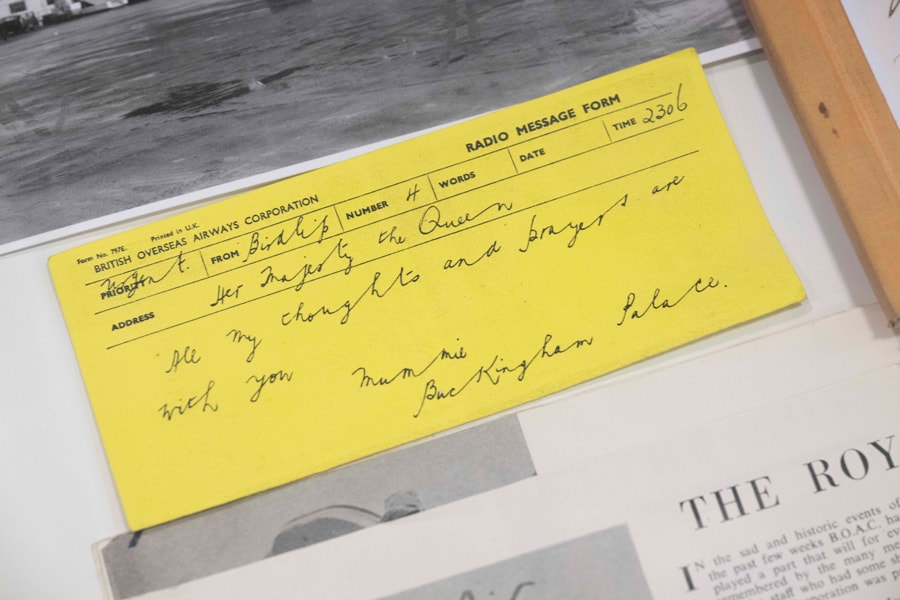 RADIO MESSAGE FORM
Form No. 797E. Printed in U.K.
BRITISH OVERSEAS AIRWAYS CORPORATION
PRIORITY Urgent. FROM Birdlip NUMBER 4 WORDS DATE TIME 2306
ADDRESS Her Majesty the Queen
All my thoughts and prayers are
with you
Mummie
Buckingham Palace.
THE ROY
IN the sad and historic events of
the past few weeks B.O.A.C. ha
played a part that will for ev
remembered by the many me
staff who had some sh
orporation was p